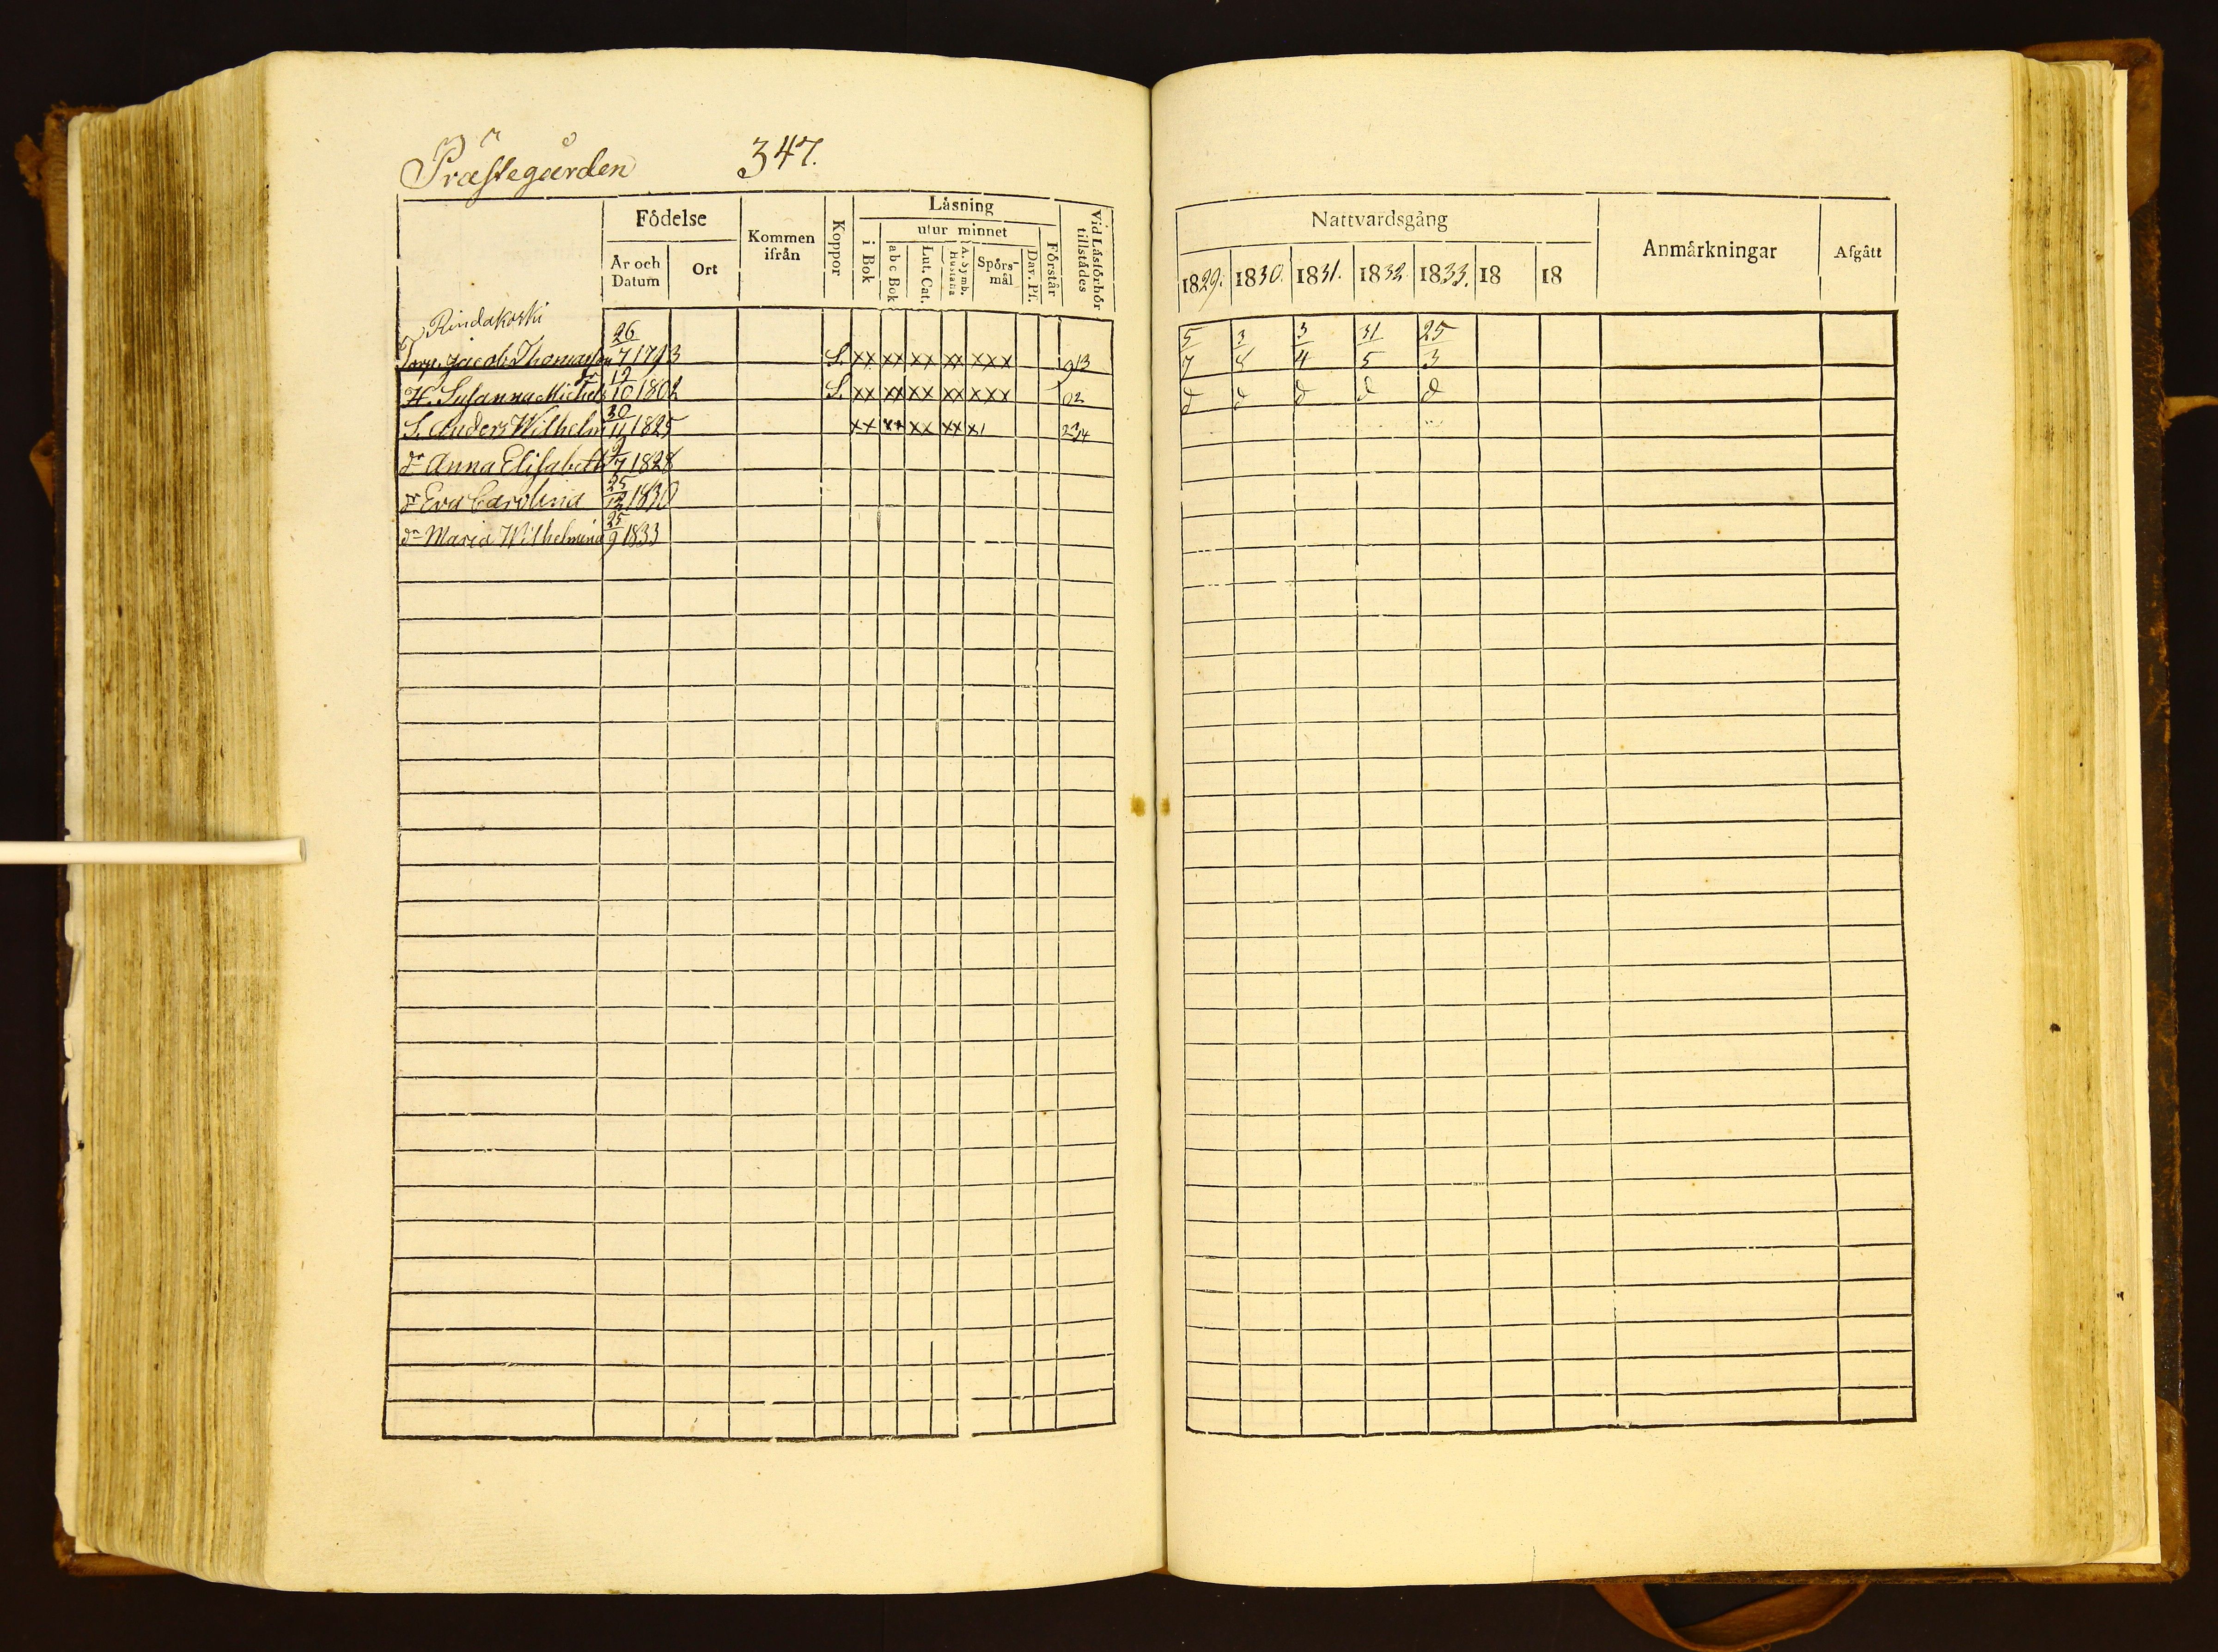 Prästegården 347.
Födelse
Kommen ifrån
Koppor
Låsning
utur minnet
Vid Låsförhör tillstådes
År och Datum
Ort
i Bok
a b c Bok
Lut. Cat.
A. Symb. Hustafla
Spörs-mål
Dav. Ps.
Förstår
Nattvardsgång
Anmårkningar
Afgått
1829. 1830. 1831. 1832. 1833. 18 18
Rindakoski
Torp. Jacob Thomasson 26/7 1793 S. xx xx xx xx xxx 913 5/7 3/8 3/4 31/5 25/3
H. Susanna Michelsdr 12/10 1802 S. xx xx xx xx xxx 02 d d d d d
S. Anders Wilhelm 30/11 1825 xx xx xx xx x1 234
dr Anna Elisabeth 9/7 1828
dr Eva Carolina 25/12 1830
dr Maria Wilhelmina 25/9 1833